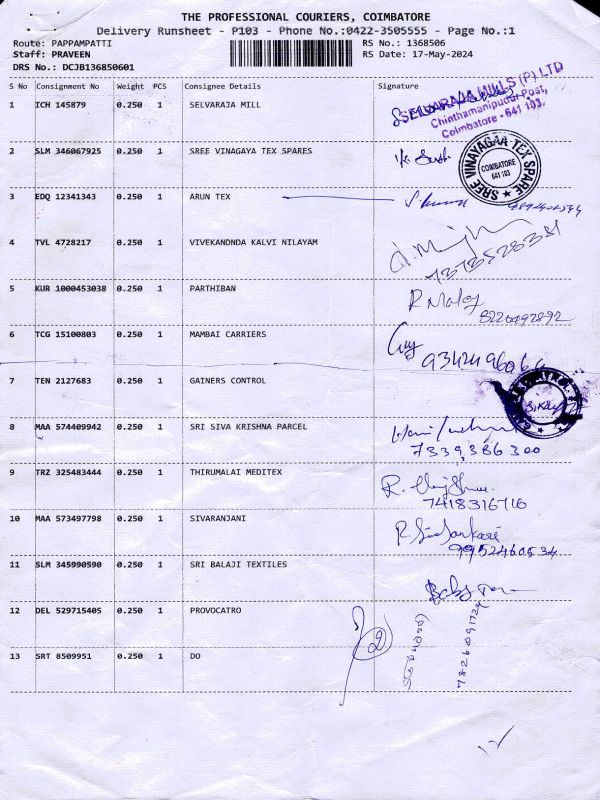 THE PROFESSIONAL COURIERS, COIMBATORE
Delivery Runsheet - P103 - Phone No.:0422-3505555 - Page No.:1
Route: PAPPAMPATTI RS No.: 1368506
Staff: PRAVEEN RS Date: 17-May-2024
DRS No.: DCJB136850601
S No Consignment No Weight PCS Consignee Details Signature
1 ICH 145879 0.250 1 SELVARAJA MILL
SELVARAJA MILLS (P) LTD
Chinthamanipudur Post,
Coimbatore - 641 103.
2 SLM 346067925 0.250 1 SREE VINAGAYA TEX SPARES
SREE VINAYAGAA TEX SPARE
COIMBATORE
641 103
3 EDQ 12341343 0.250 1 ARUN TEX
4 TVL 4728217 0.250 1 VIVEKANDNDA KALVI NILAYAM
7373528381
5 KUR 1000453038 0.250 1 PARTHIBAN
8220492892
6 TCG 15100803 0.250 1 MAMBAI CARRIERS
7 TEN 2127683 0.250 1 GAINERS CONTROL
8 MAA 574409942 0.250 1 SRI SIVA KRISHNA PARCEL
7339386300
9 TRZ 325483444 0.250 1 THIRUMALAI MEDITEX
7418316716
10 MAA 573497798 0.250 1 SIVARANJANI
R. Sivasankari
9952460534
11 SLM 345990590 0.250 1 SRI BALAJI TEXTILES
12 DEL 529715405 0.250 1 PROVOCATRO
2
13 SRT 8509951 0.250 1 DO